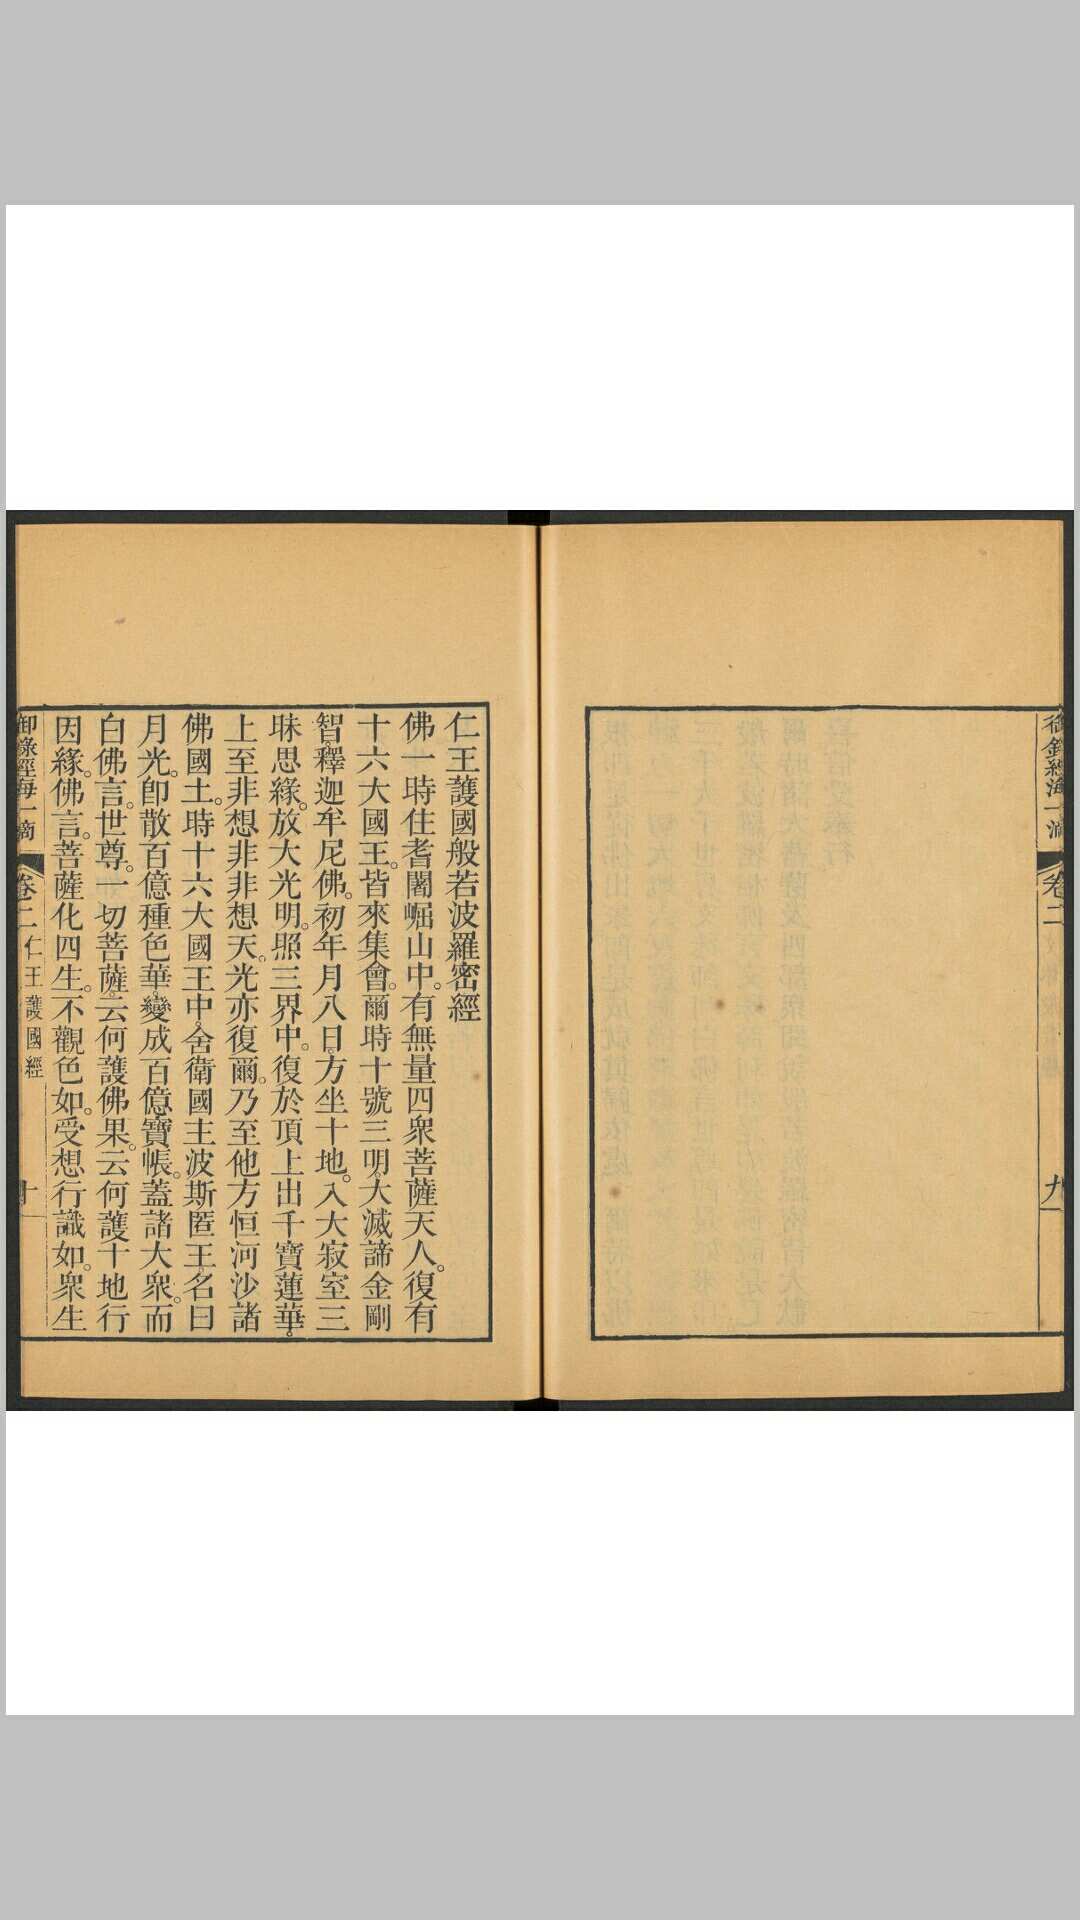 御錄經海一滴
卷二
九
仁王護國般若波羅密經
佛一時住耆闍崛山中。有無量四衆菩薩天人。復有
十六大國王。皆來集會。爾時十號三明。大滅諦金剛
智。釋迦牟尼佛。初年月八日。方坐十地。入大寂室三
昧思緣。放大光明。照三界中。復於頂上出千寶蓮華。
上至非想非非想天。光亦復爾。乃至他方恒河沙諸
佛國土。時十六大國王中。舍衛國主波斯匿王。名曰
月光。卽散百億種色華。變成百億寶帳。蓋諸大衆。而
白佛言。世尊。一切菩薩。云何護佛果。云何護十地行
因緣。佛言。菩薩化四生。不觀色如。受想行識如。衆生
御錄經海一滴
卷二
仁王護國經
十